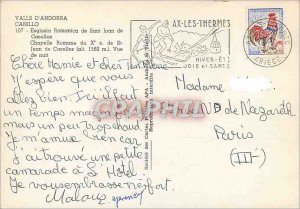 VALLS D'ANDORRA
CANILLO
107 - Esglesia Romanica de Sant Joan de Caselles
Chapelle Romane du X° s. de St-Jean de Caselles (alt. 1560 m.) Vue de nuit
AX-LES-THERMES
HIVER-ÉTÉ
JOIE et SANTÉ
ARIEGE
Chère Mamie et cher
J'espère que vous
allez bien. Ici il fait un
temps magnifique
mais un peu trop chaud.
Je m'amuse bien car
j'ai trouvé une petite
camarade à l'Hôtel
Je vous embrasse
Madame
de Nazareth
Paris
(III°)
CPAPHIL.COM